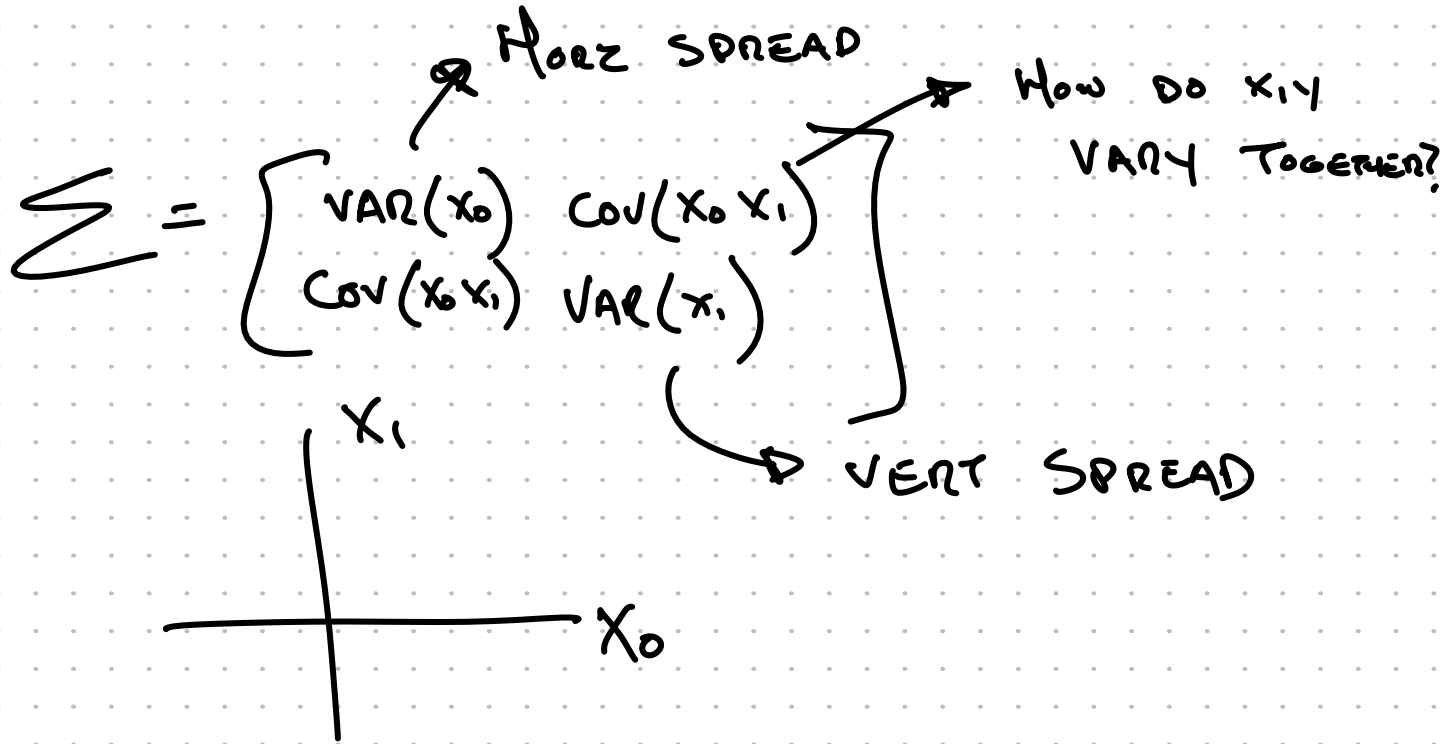 HORZ SPREAD
HOW DO X,Y
VARY TOGETHER?
Σ = [ VAR(X₀) COV(X₀ X₁)
COV(X₀ X₁) VAR(X₁) ]
X₁
VERT SPREAD
X₀